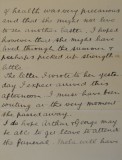 and health was very precarious
and that she might not live
to see another birth. I hope
however that she might have
lived through the summer &
perhaps picked up strength
The letter I wrote to her yester
day I expect arrived this
afternoon. I must have been
writing at the very moment
she passed away.
I do hope Arthur & George may
be able to get leave to attend
the funeral. will have